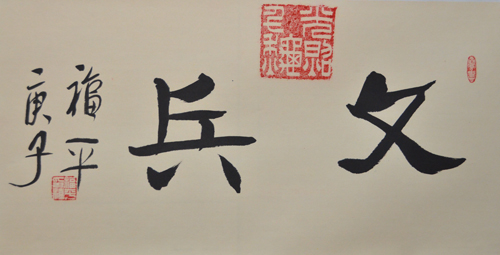 文兵
福平
庚子